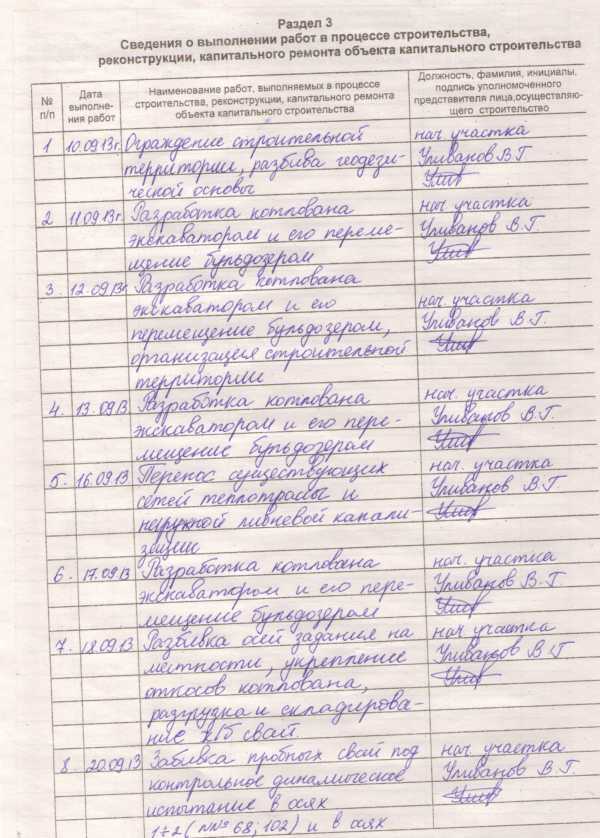 Раздел 3
Сведения о выполнении работ в процессе строительства,
реконструкции, капитального ремонта объекта капитального строительства
№ п/п
Дата выполне-
ния работ
Наименование работ, выполняемых в процессе
строительства, реконструкции, капитального ремонта
объекта капитального строительства
Должность, фамилия, инициалы,
подпись уполномоченного
представителя лица,осуществляю-
щего строительство
1 10.09.13г. Ограждение строительной нач. участка
территории, разбивка геодези- Уливанов В.Г.
ческой основы
2 11.09.13г. Разработка котлована нач. участка
экскаватором и его переме- Уливанов В.Г.
щение бульдозером
3. 12.09.13г. Разработка котлована
экскаватором и его нач. участка
перемещение бульдозером, Уливанов В.Г.
организация строительной
территории
4. 13.09.13 Разработка котлована нач. участка
экскаватором и его пере- Уливанов В.Г.
мещение бульдозером
5. 16.09.13 Перенос существующих нач. участка
сетей теплотрасы и Уливанов В.Г
наружной ливневой канали-
зации
6. 17.09.13 Разработка котлована нач. участка
экскаватором и его пере- Уливанов В.Г.
мещение бульдозером
7. 18.09.13 Разбивка осей здания на нач. участка
местности, укрепление Уливанов В.Г
откосов котлована,
разгрузка и складирова-
ние ж/б свай.
8. 20.09.13 Забивка пробных свай под нач. участка
контрольное динамическое Уливанов В.Г.
испытание в осях
1÷2 (№№ 68; 102) и в осях